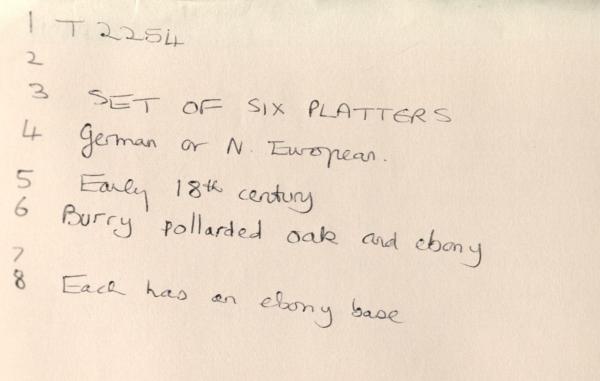 1 T 2254
2
3 SET OF SIX PLATTERS
4 German or N. European.
5 Early 18th century
6 Burry pollarded oak and ebony
7
8 Each has an ebony base